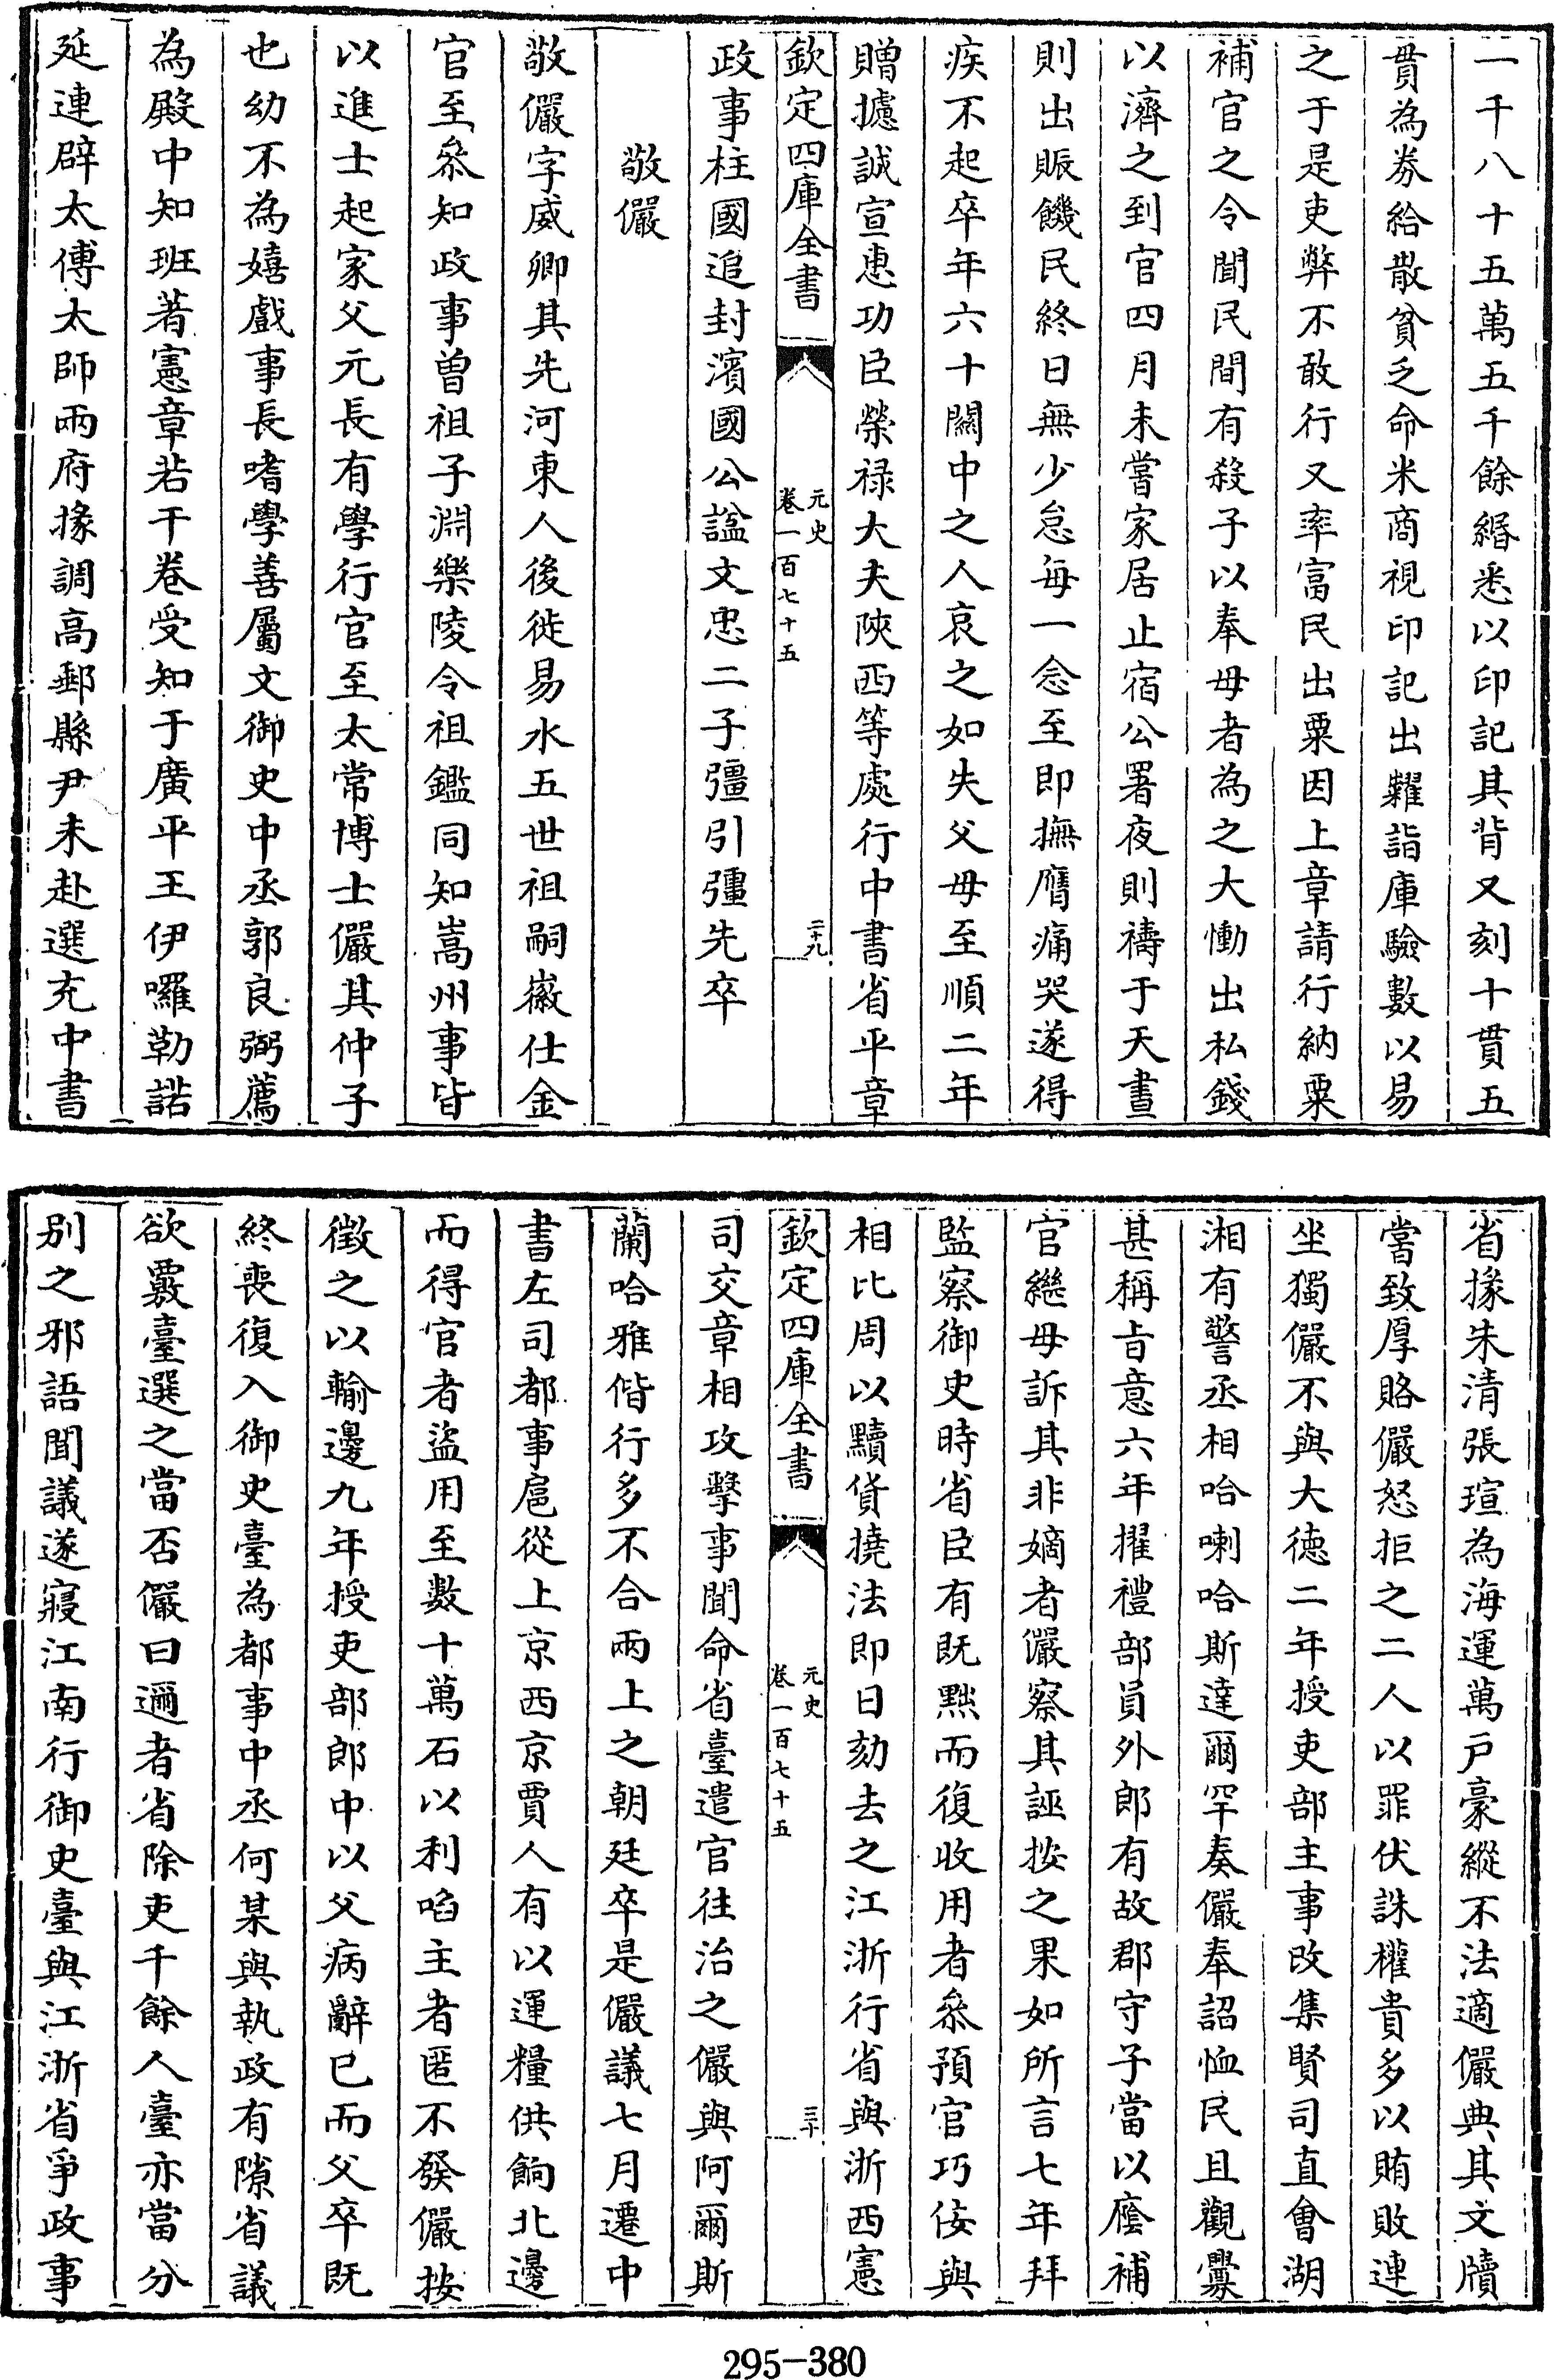 一千八十五萬五千餘緡悉以印記其背又刻十貫五
貫為劵給散貧乏命米商視印記出糶詣庫驗數以易
之于是吏弊不敢行又率富民出粟因上章請行納粟
補官之令聞民間有殺子以奉母者為之大慟出私錢
以濟之到官四月未嘗家居止宿公署夜則禱于天晝
則出賑饑民終日無少怠每一念至即撫膺痛哭遂得
疾不起卒年六十關中之人哀之如失父母至順二年
贈攄誠宣惠功臣榮禄大夫陜西等處行中書省平章
欽定四庫全書
元史
卷一百七十五
二十九
政事柱國追封濱國公諡文忠二子彊引彊先卒
敬儼
敬儼字威卿其先河東人後徙易水五世祖嗣徽仕金
官至叅知政事曽祖子淵樂陵令祖鑑同知嵩州事皆
以進士起家父元長有學行官至太常博士儼其仲子
也幼不為嬉戲事長嗜學善屬文御史中丞郭良弼薦
為殿中知班著憲章若干卷受知于廣平王伊囉勒諾
延連辟太傅太師兩府掾調高郵縣尹未赴選充中書
省掾朱清張瑄為海運萬戸豪縱不法適儼典其文牘
嘗致厚賂儼怒拒之二人以罪伏誅權貴多以賄敗連
坐獨儼不與大徳二年授吏部主事改集賢司直會湖
湘有警丞相哈喇哈斯達爾罕奏儼奉詔恤民且觀釁
甚稱㫖意六年擢禮部員外郎有故郡守子當以廕補
官繼母訴其非嫡者儼察其誣按之果如所言七年拜
監察御史時省臣有既黜而復收用者叅預官巧佞與
相比周以黷貨撓法即日劾去之江浙行省與浙西憲
欽定四庫全書
元史
卷一百七十五
三十
司交章相攻擊事聞命省臺遣官往治之儼與阿爾斯
蘭哈雅偕行多不合兩上之朝廷卒是儼議七月遷中
書左司都事扈從上京西京賈人有以運糧供餉北邊
而得官者盜用至數十萬石以利啗主者匿不發儼按
徵之以輸邊九年授吏部郎中以父病辭已而父卒既
終喪復入御史臺為都事中丞何某與執政有隙省議
欲覈臺選之當否儼曰邇者省除吏千餘人臺亦當分
别之邪語聞議遂寢江南行御史臺與江浙省爭政事
295-380